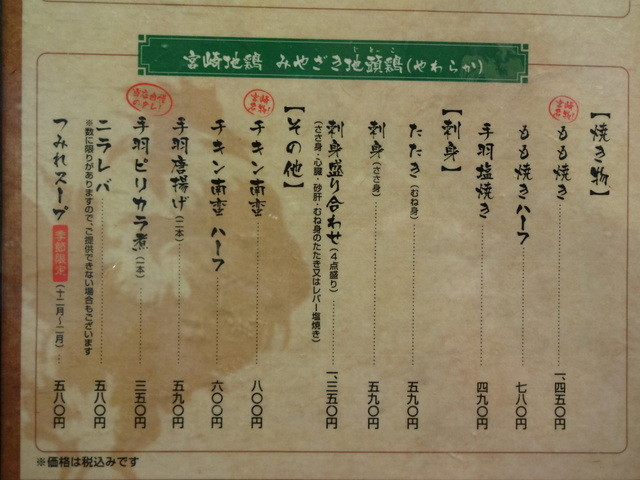 宮崎地鶏 みやざき地頭鶏(やわらか)
じとっこ
【焼き物】
宮崎名物!
もも焼き 一、四五〇円
もも焼きハーフ 七八〇円
手羽塩焼き 四九〇円
【刺身】
たたき(むね身) 五九〇円
刺身(ささ身) 五九〇円
刺身盛り合わせ(4点盛り) 一、三五〇円
(ささ身・心臓・砂肝・むね身のたたき又はレバー塩焼き)
【その他】
宮崎名物!
チキン南蛮 八〇〇円
チキン南蛮 ハーフ 六〇〇円
手羽唐揚げ(二本) 五九〇円
手羽ピリカラ煮(二本) 三五〇円
ニラレバ 五八〇円
※数に限りがありますので、ご提供できない場合もございます
つみれスープ 季節限定(十二月〜二月) 五八〇円
※価格は税込みです